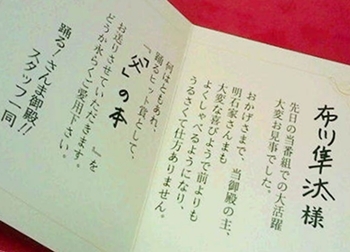 布川隼汰様
先日の当番組での大活躍
大変お見事でした。
おかげさまで、当御殿の主、
明石家さんまも
大変な喜びようで前よりも
よくしゃべるようになり、
うるさくて仕方ありません。
何はともあれ、
踊るヒット賞として、
「父」の本
を
お送りさせていただきます。
どうか永らくご愛用下さい。
踊る!さんま御殿!!
スタッフ一同